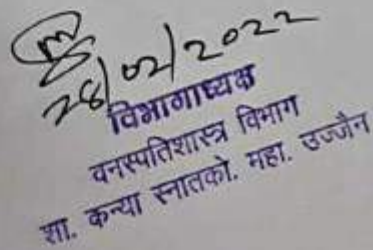 28/02/2022
विभागाध्यक्ष
वनस्पतिशास्त्र विभाग
शा. कन्या स्नातको. महा. उज्जैन